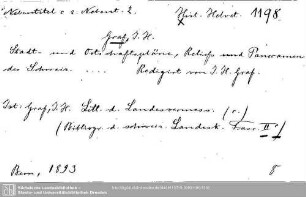 Nebentitel : s. Nebent. 2.
Hist. Helvet. 1198
X
Graf, J. H.
Stadt- und Ortschaftspläne, Reliefs und Panoramen
der Schweiz. .... Redigiert von J. H. Graf.
Ist: Graf, J. H. Litt. d. Landesvermess. (r.)
(Bibliogr. d. schweiz. Landesk. Fasc. II c)
Bern, 1893
8
Sächsische Landesbibliothek -
Staats- und Universitätsbibliothek Dresden